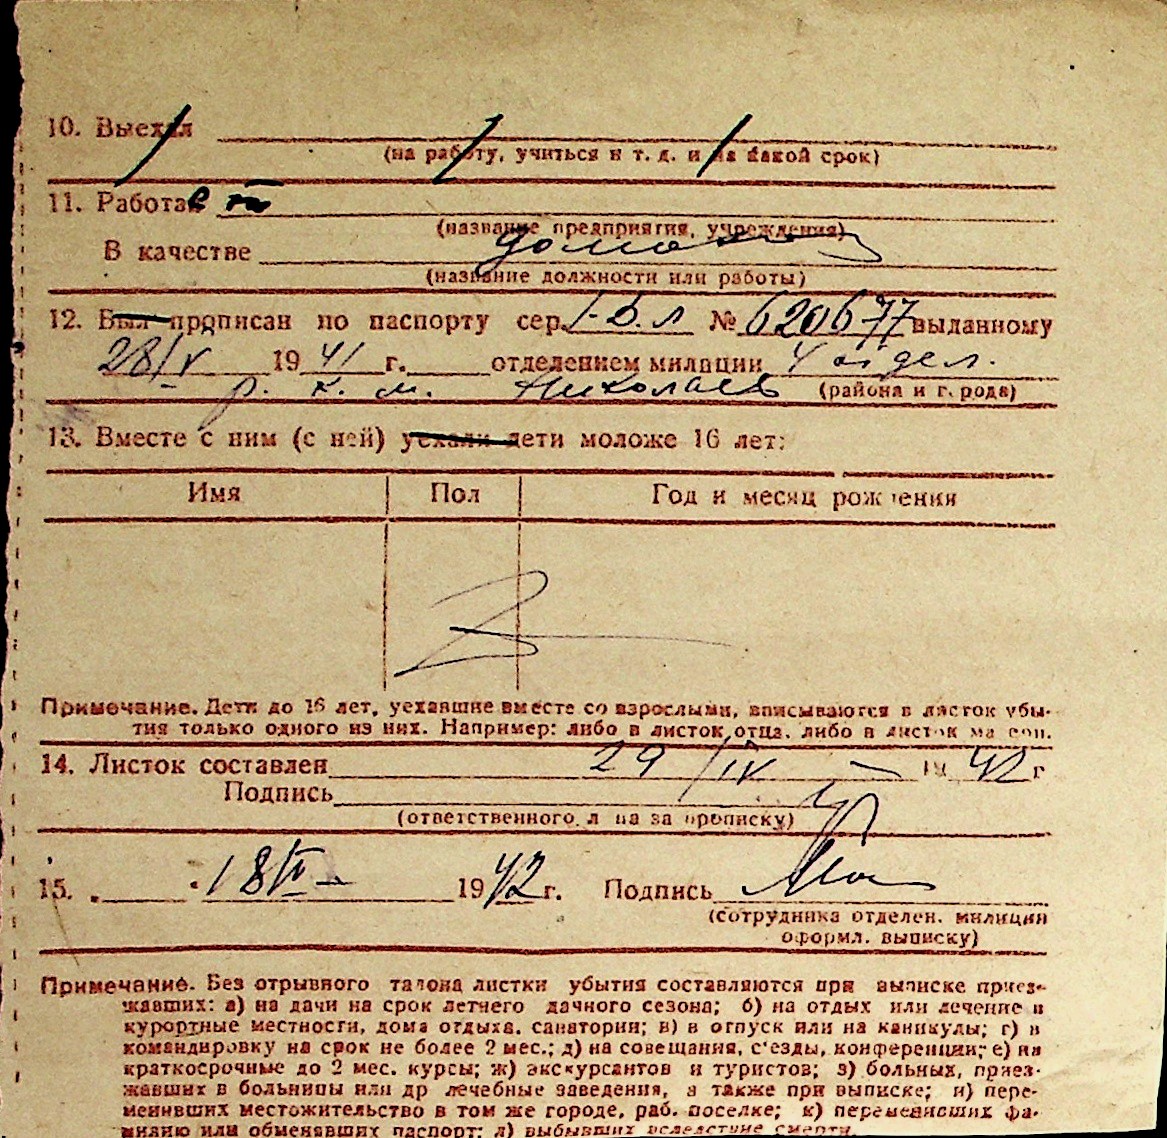 10. Выехал
(на работу, учиться и т. д. и на какой срок)
11. Работает
(название предприятия, учреждения)
В качестве домохоз
(название должности или работы)
12. Был прописан по паспорту сер. № 620677 выданному
28/V 1941 г. отделением милиции 4 отдел.
р. к. м. Николаев (района и города)
13. Вместе с ним (с ней) уехали дети моложе 16 лет:
Имя Пол Год и месяц рождения
Примечание. Дети до 16 лет, уехавшие вместе со взрослыми, вписываются в листок убы-
тия только одного из них. Например: либо в листок отца, либо в листок матери.
14. Листок составлен 29/IV 1942 г
Подпись
(ответственного лица за прописку)
15. 18/ 1942 г. Подпись
(сотрудника отделен. милиции
оформл. выписку)
Примечание. Без отрывного талона листки убытия составляются при выписке приез-
жавших: а) на дачи на срок летнего дачного сезона; б) на отдых или лечение в
курортные местности, дома отдыха, санатории; в) в отпуск или на каникулы; г) в
командировку на срок не более 2 мес.; д) на совещания, с'езды, конференции; е) на
краткосрочные до 2 мес. курсы; ж) экскурсантов и туристов; з) больных, приез-
жавших в больницы или др лечебные заведения, а также при выписке; и) пере-
менивших местожительство в том же городе, раб. поселке; к) переменивших фа-
милию или обменявших паспорт; л) выбывших вследствие смерти.